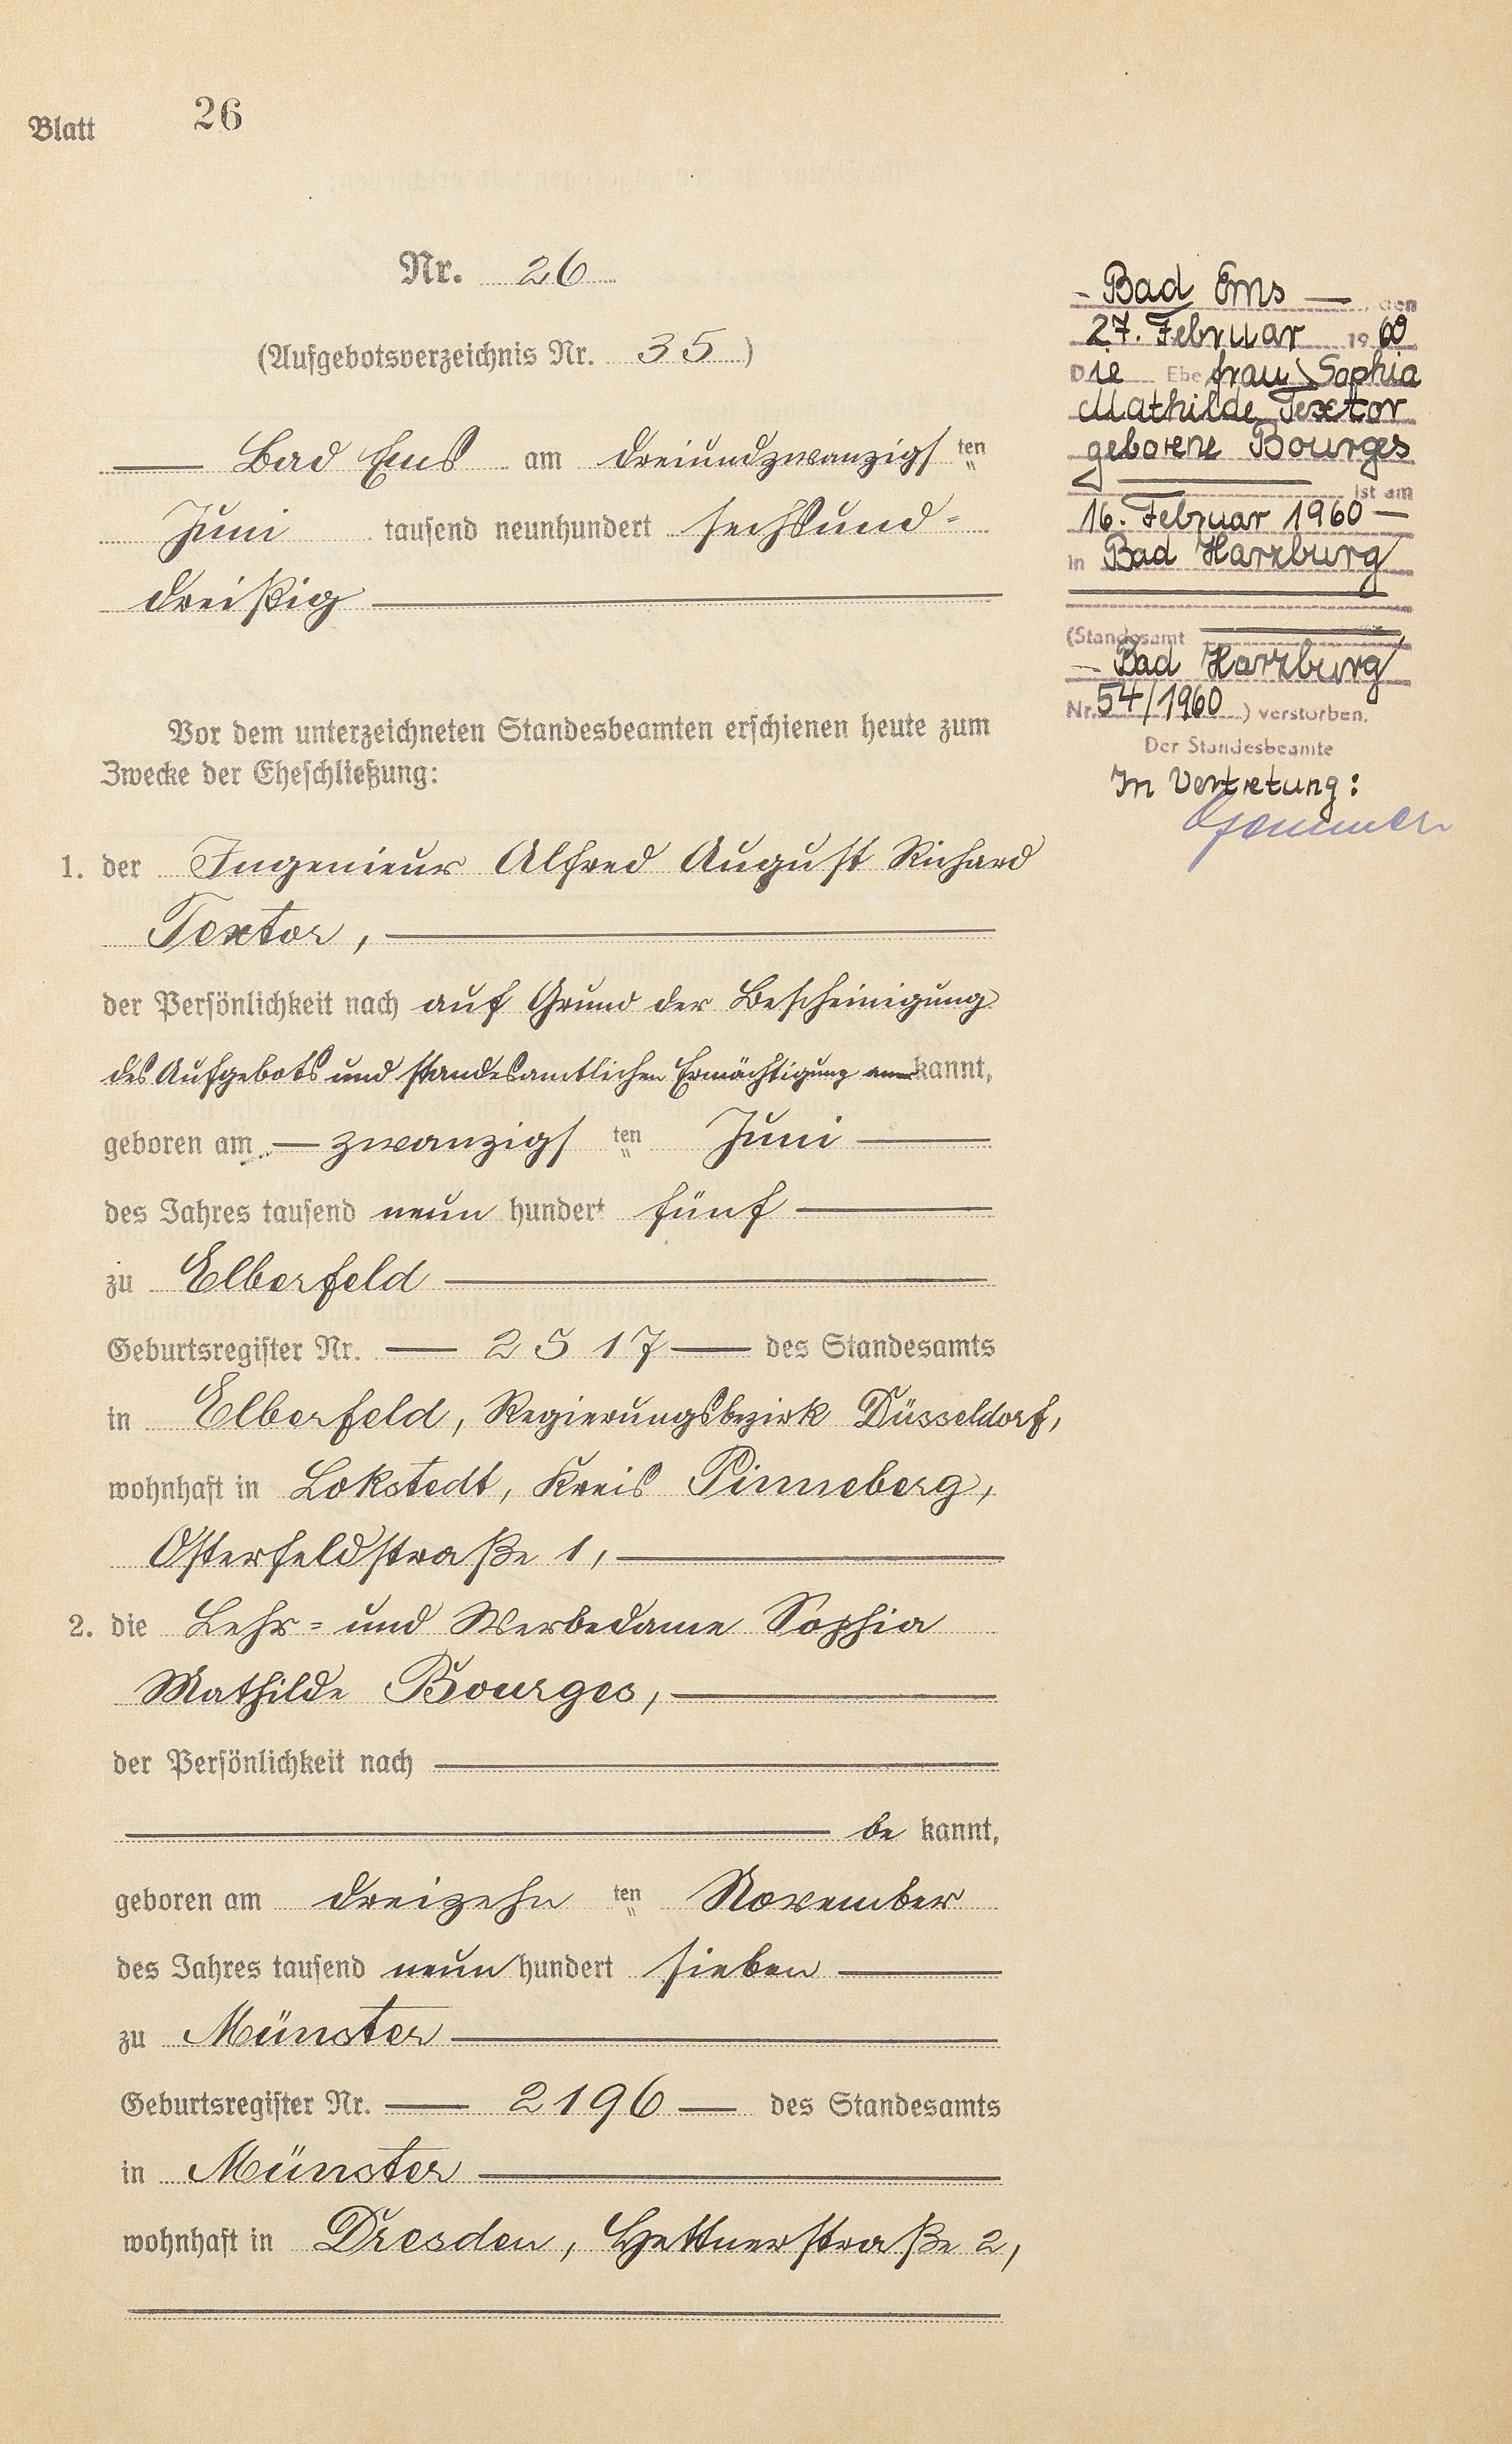 Blatt 26
Nr. 26
(Aufgebotsverzeichnis Nr. 35)
Bad Ems am dreiundzwanzigsten
Juni tausend neunhundert sechsund=
dreißig
Vor dem unterzeichneten Standesbeamten erschienen heute zum
Zwecke der Eheschließung:
1. der Ingenieur Alfred August Richard
Textor,
der Persönlichkeit nach auf Grund der Bescheinigung
des Aufgebots und standesamtlichen Ermächtigung anerkannt,
geboren am zwanzigsten Juni
des Jahres tausend neun hundert fünf
zu Elberfeld
Geburtsregister Nr. 2517 des Standesamts
in Elberfeld, Regierungsbezirk Düsseldorf,
wohnhaft in Lokstedt, Kreis Pinneberg,
Osterfeldstraße 1,
2. die Lehr= und Werbedame Sophia
Mathilde Bourges,
der Persönlichkeit nach
be kannt,
geboren am dreizehnten November
des Jahres tausend neun hundert sieben
zu Münster
Geburtsregister Nr. 2196 des Standesamts
in Münster
wohnhaft in Dresden, Hettnerstraße 2,
Bad Ems, den
27. Februar 1960
Die Ehefrau Sophia
Mathilde Textor
geborene Bourges
ist am
16. Februar 1960
in Bad Harzburg
(Standesamt
Bad Harzburg
Nr. 54/1960) verstorben.
Der Standesbeamte
In Vertretung: